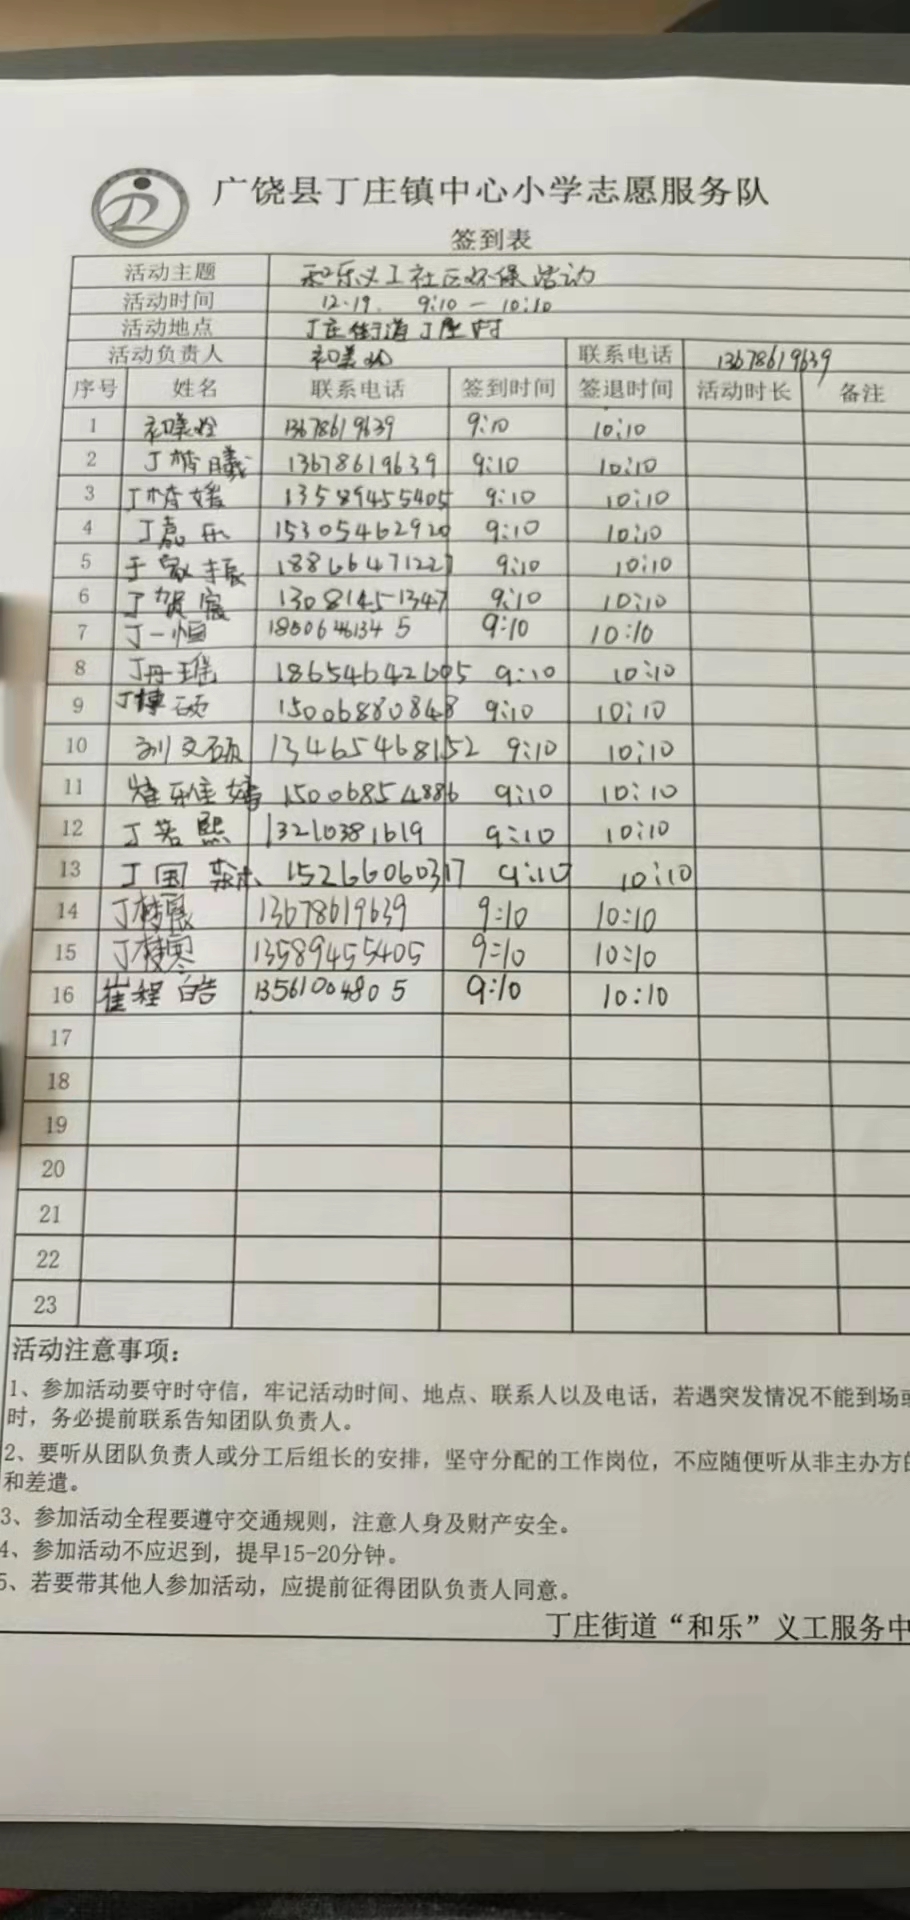 广饶县丁庄镇中心小学志愿服务队
签到表
活动主题 和乐义工社区环保活动
活动时间 12.19. 9:10—10:10
活动地点 丁庄街道丁庄村
活动负责人 联系电话 13678619639
序号 姓名 联系电话 签到时间 签退时间 活动时长 备注
1 13678619639 9:10 10:10
2 丁梓曦 13678619639 9:10 10:10
3 丁梓媛 13589455405 9:10 10:10
4 丁嘉乐 15305462920 9:10 10:10
5 于家振 18866471227 9:10 10:10
6 丁贺宸 13081451347 9:10 10:10
7 丁一恒 18606461345 9:10 10:10
8 丁丹瑶 18654642605 9:10 10:10
9 丁梓硕 15006880848 9:10 10:10
10 刘文硕 13465468152 9:10 10:10
11 崔雅婧 15006854886 9:10 10:10
12 丁若熙 13210381619 9:10 10:10
13 丁国森 15266060317 9:10 10:10
14 丁梓晨 13678619639 9:10 10:10
15 13589455405 9:10 10:10
16 崔程皓 13561004805 9:10 10:10
17
18
19
20
21
22
23
活动注意事项：
1、参加活动要守时守信，牢记活动时间、地点、联系人以及电话，若遇突发情况不能到场或
时，务必提前联系告知团队负责人。
2、要听从团队负责人或分工后组长的安排，坚守分配的工作岗位，不应随便听从非主办方的
和差遣。
3、参加活动全程要遵守交通规则，注意人身及财产安全。
4、参加活动不应迟到，提早15-20分钟。
5、若要带其他人参加活动，应提前征得团队负责人同意。
丁庄街道“和乐”义工服务中